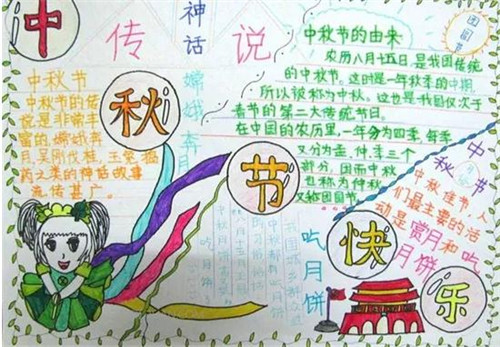 中
秋
节
快
乐
神话
传说
团圆节
中秋节
中秋节的传
说是非常丰
富的,嫦娥奔
月,吴刚伐桂,玉兔捣
药之类的神话故事
流传甚广。
嫦娥奔月
中秋节的由来
农历八月十五日是我国传统
的中秋节。这时是一年秋季的中期,
所以被称为中秋。这也是我国仅次于
春节的第二大传统节日。
在中国的农历里,一年分为四季,每季
又分为孟、仲、季三个
部分,因而中秋
也称为仲秋
又称团圆节
中秋节
中秋佳节,人
们最主要的活
动是赏月和吃
月饼
吃月饼